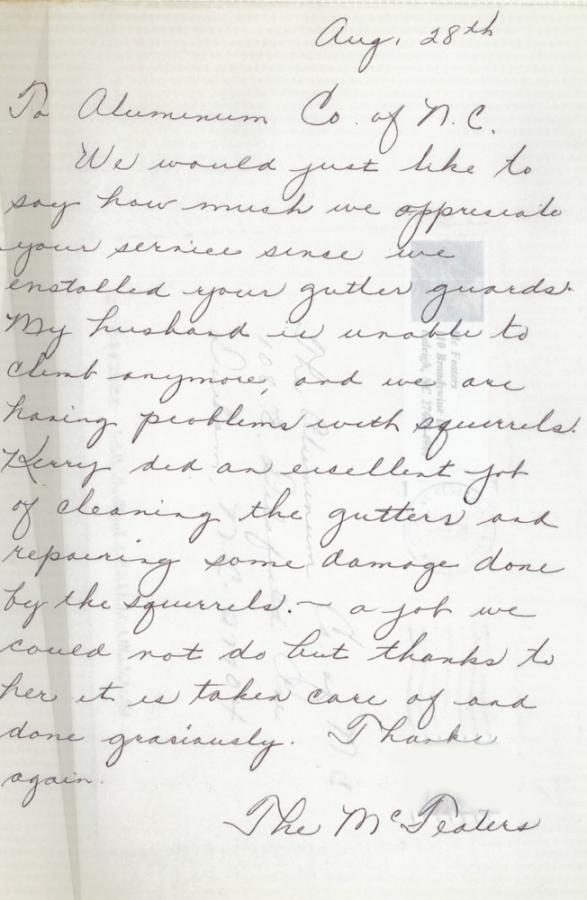 Aug. 28th
To Aluminum Co. of N.C.
We would just like to
say how much we appreciate
your service since we
enstalled your gutter guards.
My husband is unable to
climb anymore, and we are
having problems with squirrels.
Kerry did an excellent job
of cleaning the gutters and
repairing some damage done
by the squirrels. - a job we
could not do but thanks to
her it is taken care of and
done graciously. Thanks
again.
The McFeaters